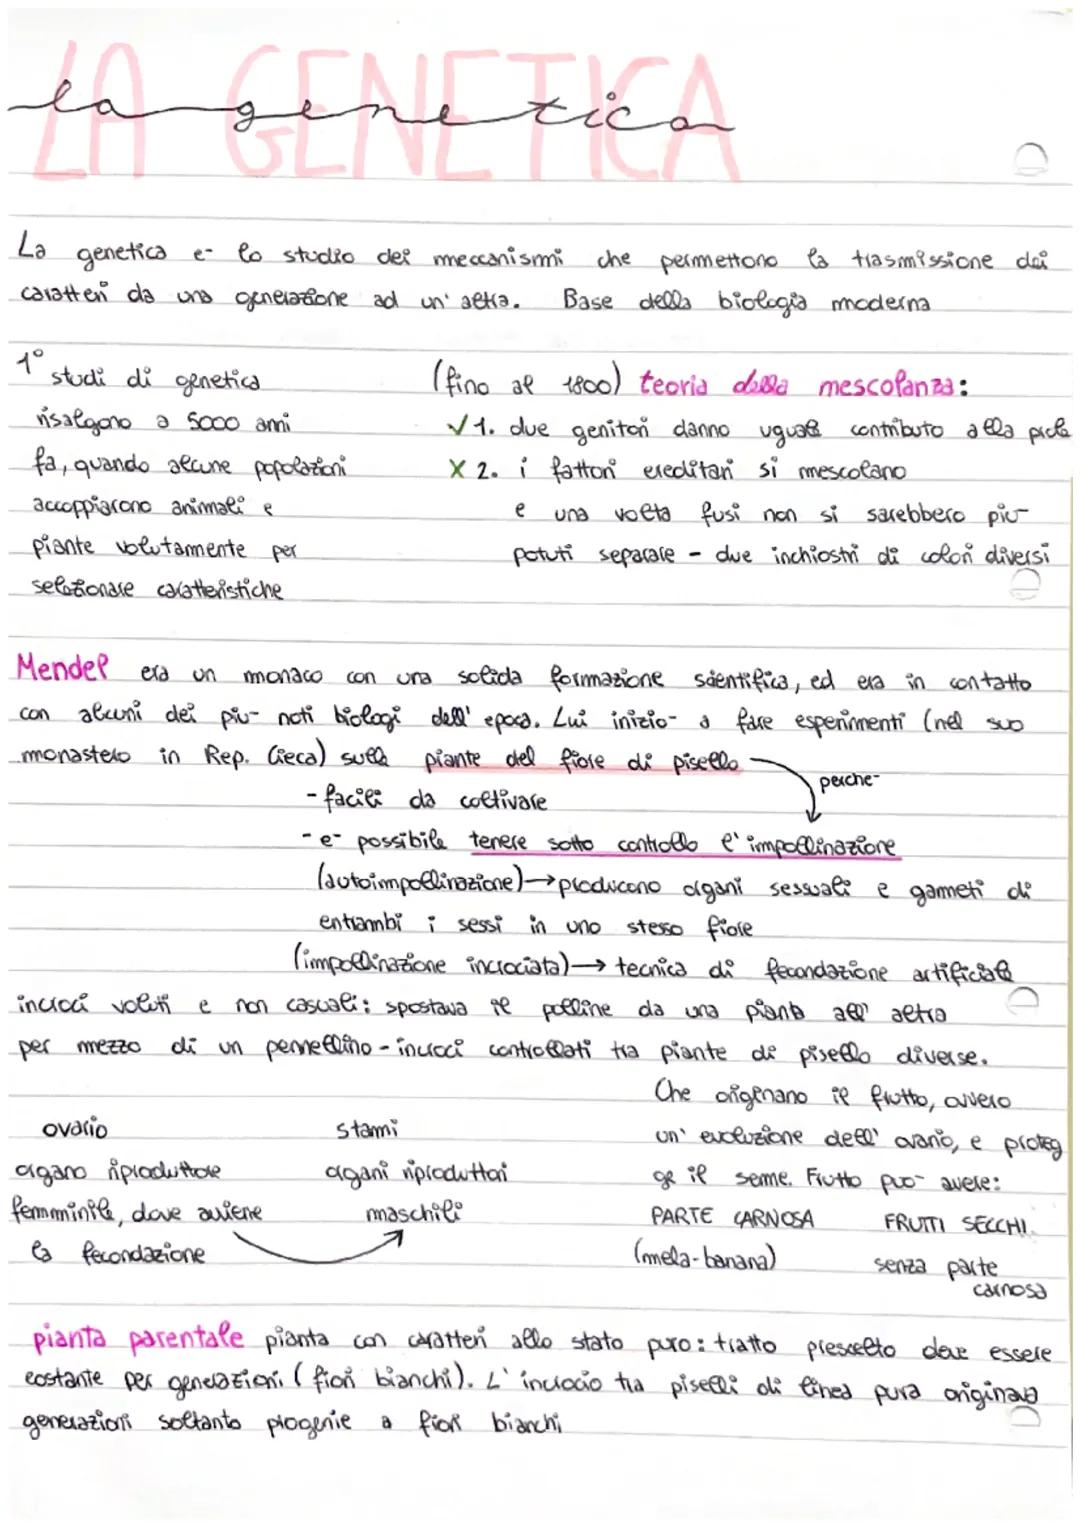 LA GENETICA
la genetica
La genetica e- lo studio dei meccanismi che permettono la trasmissione dei
caratteri da una generazione ad un'altra. Base della biologia moderna
1° studi di genetica
risalgono a 5000 anni
fa, quando alcune popolazioni
accoppiarono animali e
piante volutamente per
selezionare caratteristiche
(fino al 1800) teoria della mescolanza:
✓ 1. due genitori danno uguale contributo alla prole
X 2. i fattori ereditari si mescolano
e una volta fusi non si sarebbero piu-
potuti separare - due inchiostri di colori diversi
Mendel era un monaco con una solida formazione scientifica, ed era in contatto
con alcuni dei piu- noti biologi dell'epoca. Lui inizio- a fare esperimenti (nel suo
monastero in Rep. Cieca) sulla piante del fiore di pisello
perche-
- facili da coltivare
- e- possibile tenere sotto controllo l'impollinazione
(autoimpollinazione) → producono organi sessuali e gameti di
entrambi i sessi in uno stesso fiore
(impollinazione incrociata) → tecnica di fecondazione artificiale
incroci voluti e non casuali: spostava il polline da una pianta all'altra
per mezzo di un pennellino - incroci controllati tra piante di pisello diverse.
Che originano il frutto, ovvero
un'evoluzione dell'ovario, e proteg
ge il seme. Frutto puo- avere:
PARTE CARNOSA
(mela-banana)
FRUTTI SECCHI
senza parte
carnosa
ovario
organo riproduttore
femminile, dove avviene
la fecondazione
stami
organi riproduttori
maschili
pianta parentale pianta con caratteri allo stato puro: tratto prescelto deve essere
costante per generazioni (fiori bianchi). L'incrocio tra piselli di linea pura originava
generazioni soltanto progenie a fiori bianchi